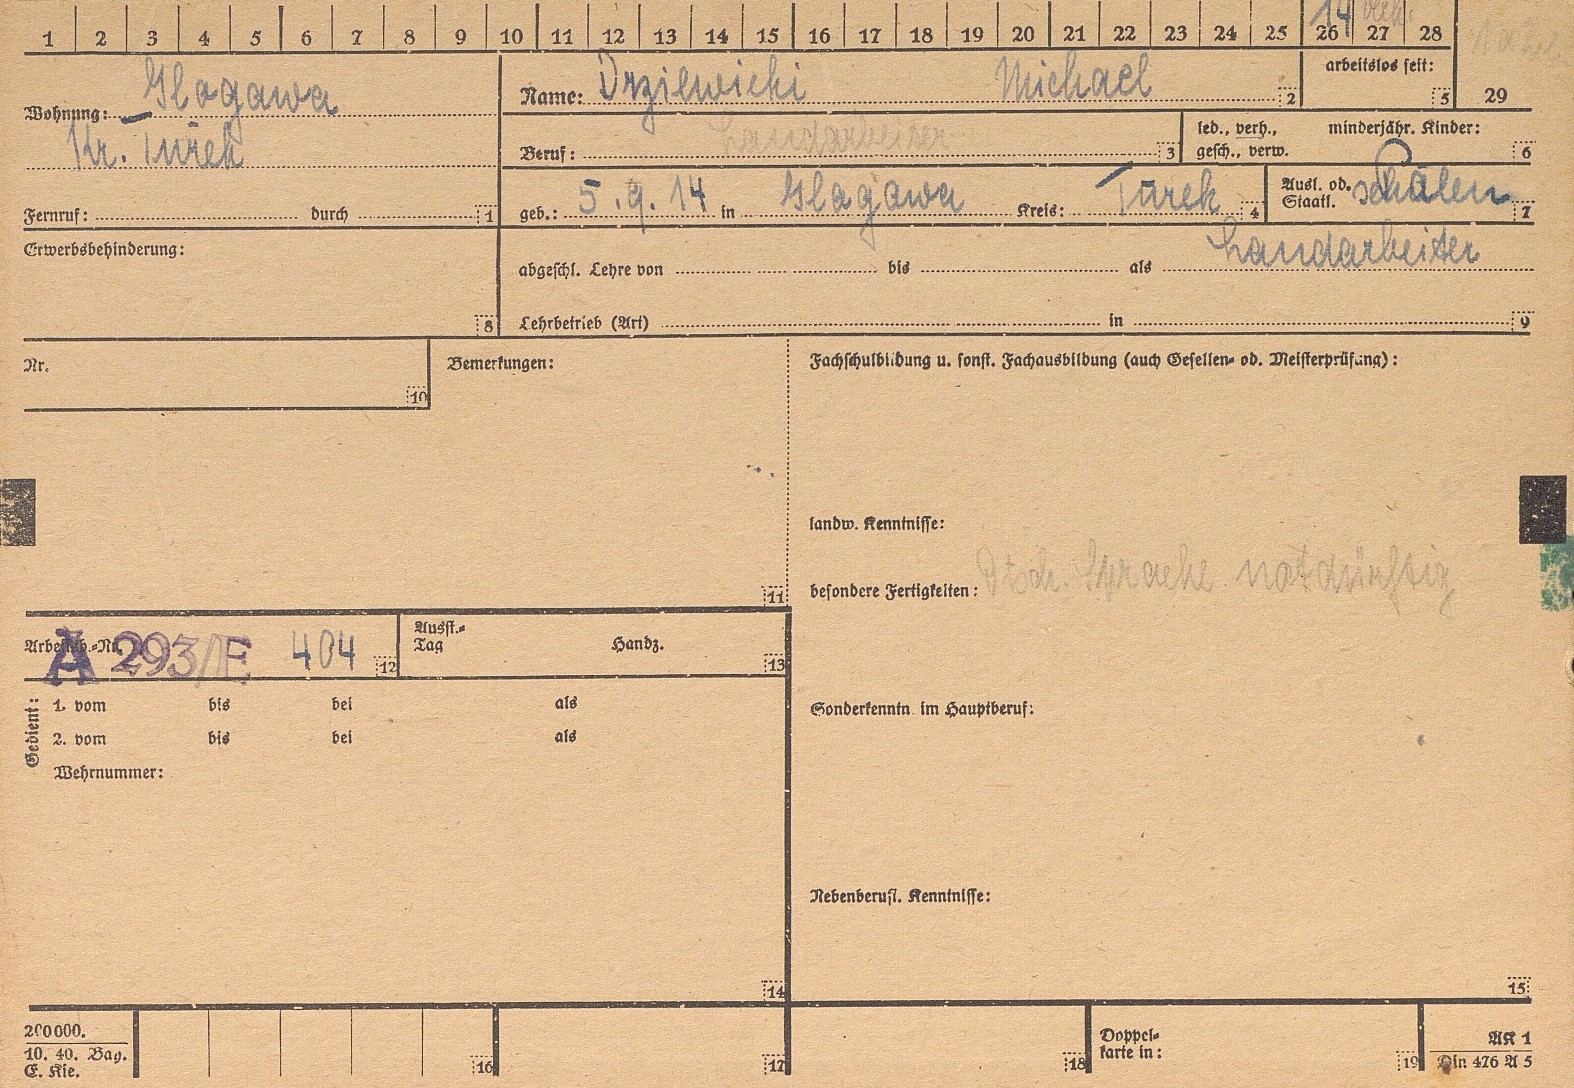 1 2 3 4 5 6 7 8 9 10 11 12 13 14 15 16 17 18 19 20 21 22 23 24 25 26 27 28 29
14 verh.
arbeitslos seit: 5
Wohnung: Glogawa
Kr. Turek
Fernruf: durch 1
Name: Drziewicki Michael 2
Beruf: Landarbeiter 3
led., verh., minderjähr. Kinder:
gesch., verw. 6
geb.: 5.9.14 in Glogawa Kreis: Turek 4
Ausl. od.
Staatl. 7
Erwerbsbehinderung: 8
abgeschl. Lehre von bis als Landarbeiter
Lehrbetrieb (Art) in 9
Nr. 10
Bemerkungen: 11
Fachschulbildung u. sonst. Fachausbildung (auch Gesellen- od. Meisterprüfung):
landw. Kenntnisse:
besondere Fertigkeiten: Dtsch. Sprache notdürftig
Arbeitsb.-Nr. A 293/E 404 12
Ausst.-
Tag Handz. 13
Gedient:
1. vom bis bei als
2. vom bis bei als
Wehrnummer:
14
Sonderkenntn. im Hauptberuf:
Nebenberufl. Kenntnisse:
15
200000.
10. 40. Bag.
E. Kie.
16 17 18
Doppel-
karte in: 19
AK 1
Din 476 A 5